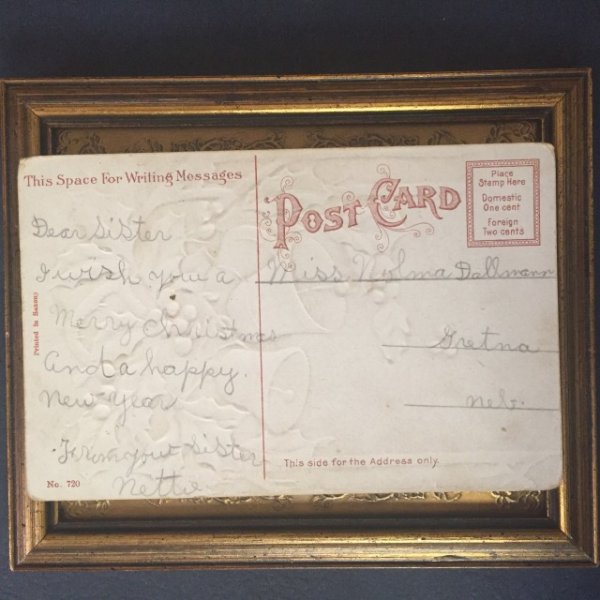 This Space For Writing Messages
POST CARD
Place
Stamp Here
Domestic
One cent
Foreign
Two cents
Dear Sister
I wish you a
Merry Christmas
And a happy.
New Year
From your Sister
Nettie.
Miss Nylma Dallmann
Gretna
Neb.
Printed in Saxony
This side for the Address only.
No. 720